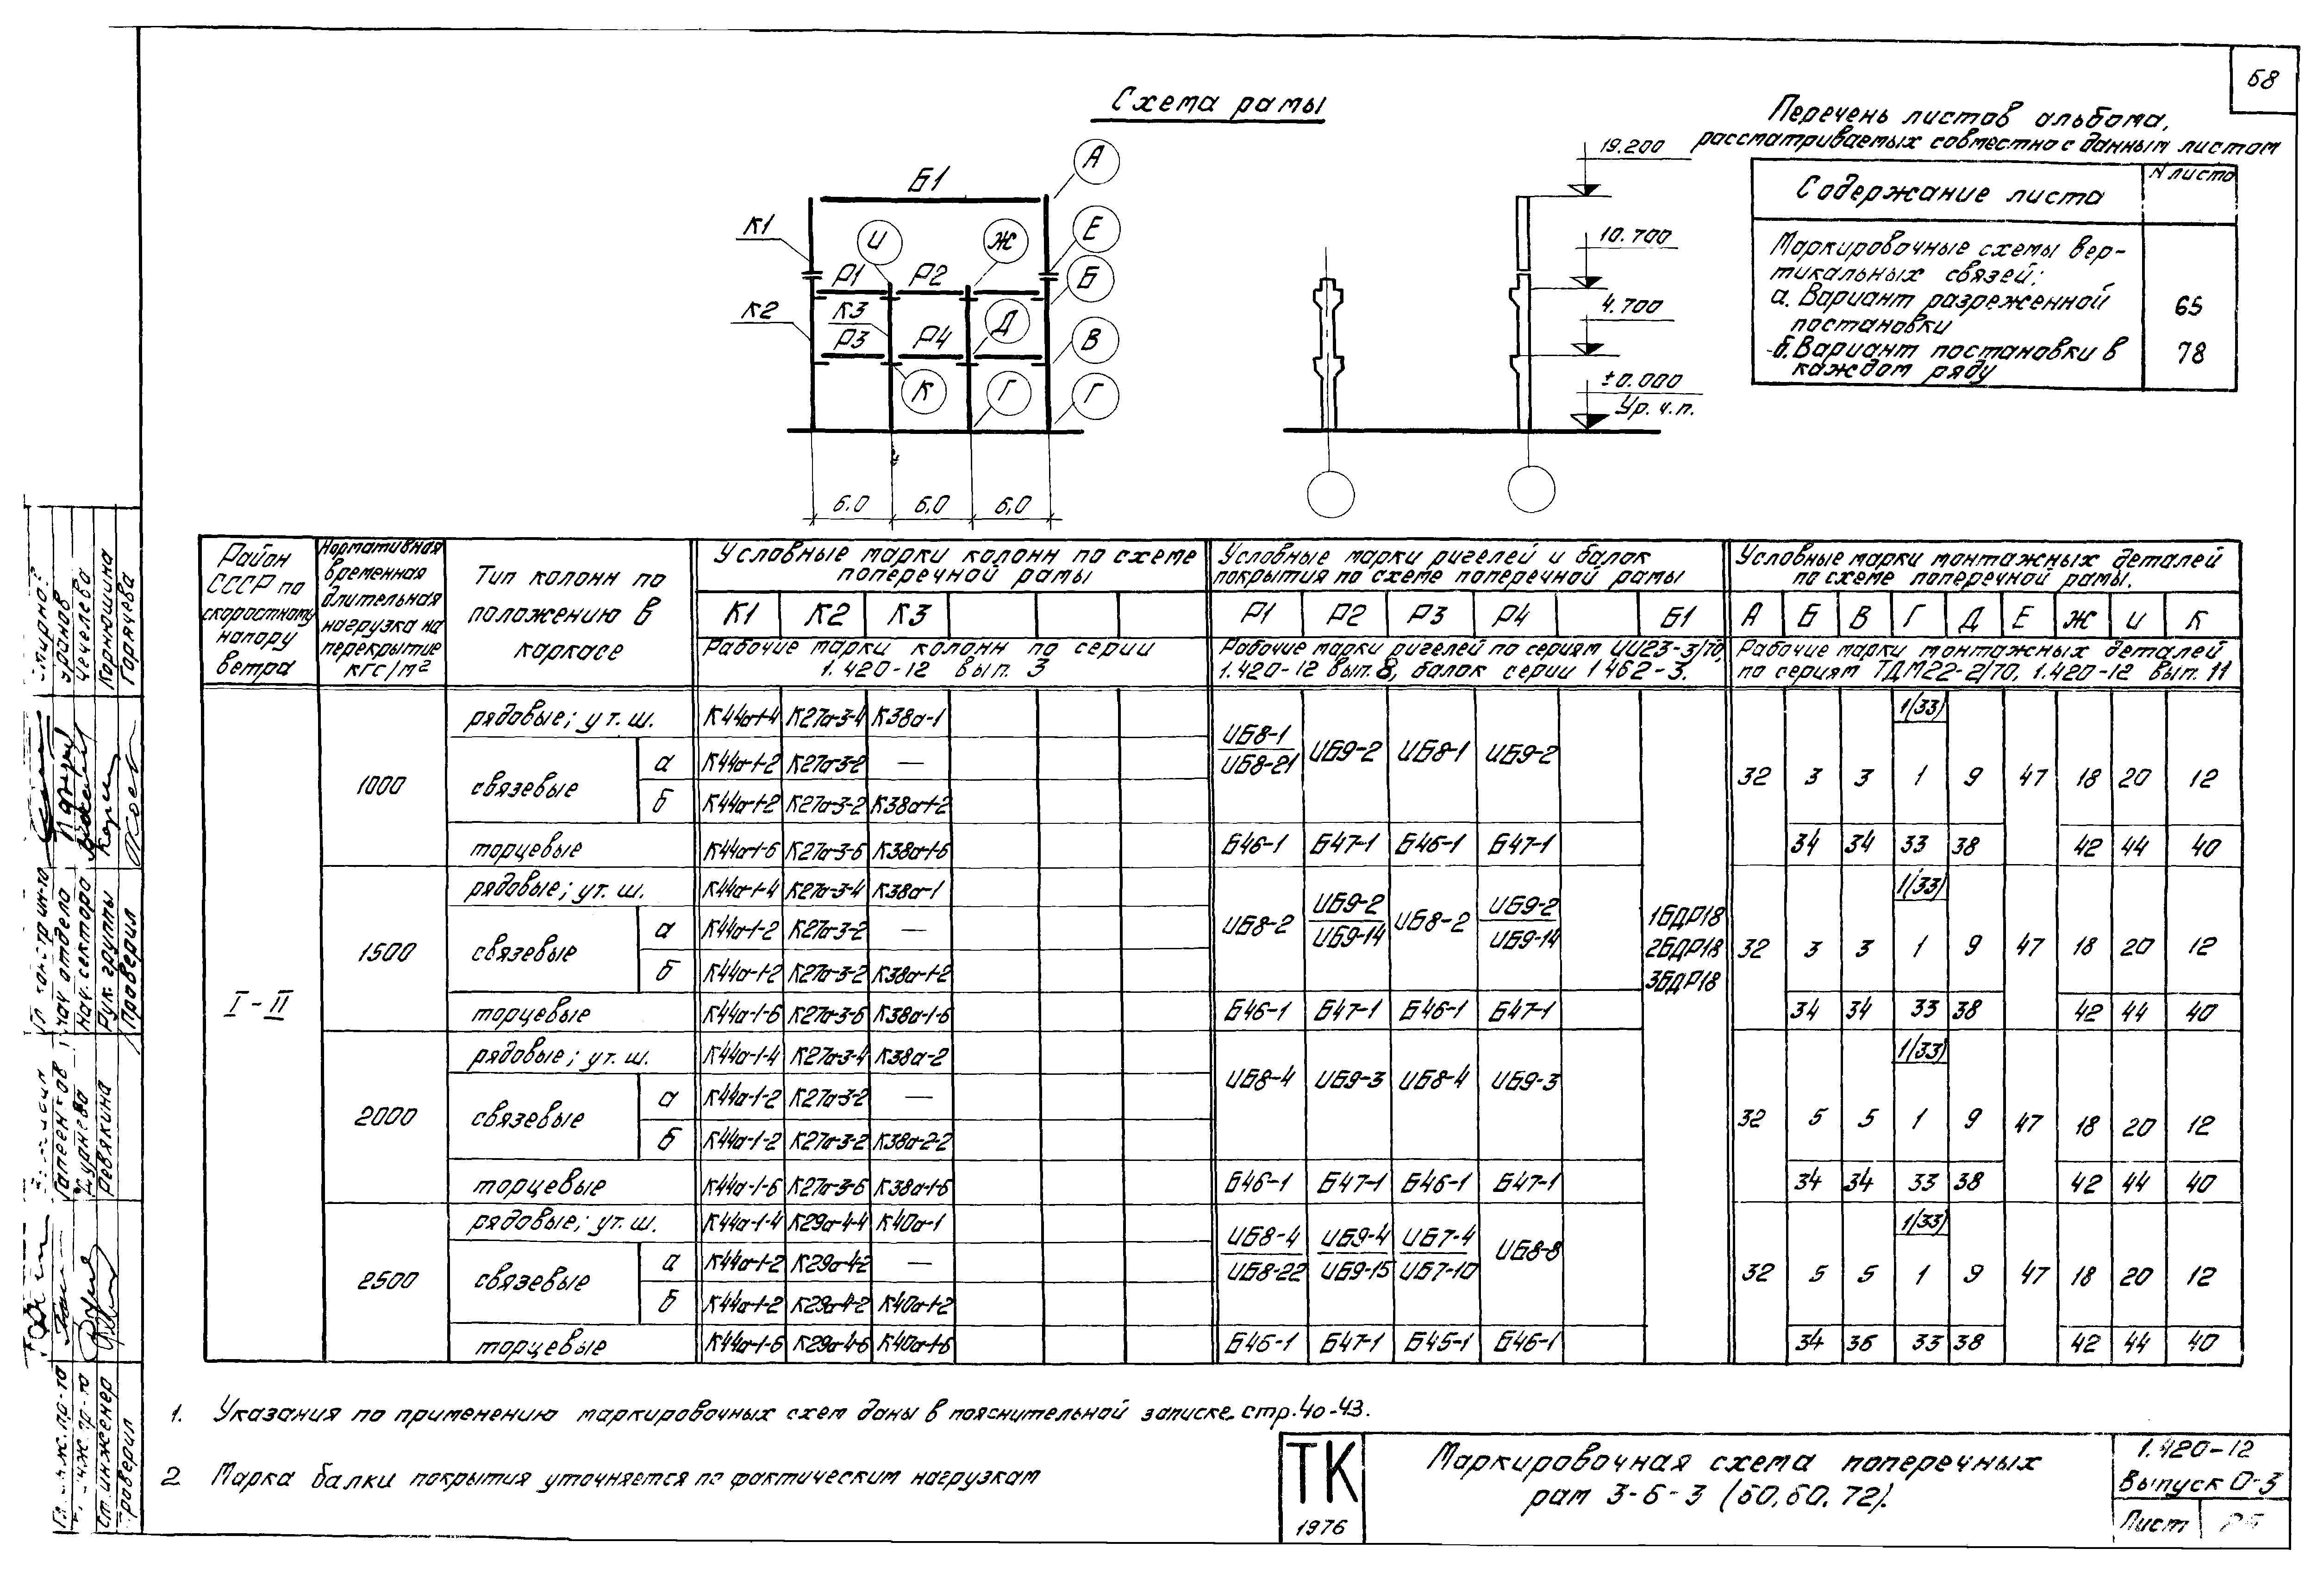 68
Схема рамы
Перечень листов альбома,
рассматриваемых совместно с данным листом
Содержание листа
N листа
Маркировочные схемы вер-
тикальных связей:
а. Вариант разреженной
постановки
65
б. Вариант постановки в
каждом ряду
78
Б1
А
К1
И
Ж
Е
Р1
Р2
Б
К2
К3
Д
Р3
Р4
В
К
Г
Г
6.0
6,0
6,0
19.200
10.700
4.700
±0.000
Ур. ч.п.
Район
СССР по
скоростному
напору
ветра
Нормативная
временная
длительная
нагрузка на
перекрытие
кгс/м2
Тип колонн по
положению в
каркасе
Условные марки колонн по схеме
поперечной рамы
К1 К2 К3
Рабочие марки колонн по серии
1.420-12 вып. 3
Условные марки ригелей и балок
покрытия по схеме поперечной рамы
Р1 Р2 Р3 Р4 Б1
Рабочие марки ригелей по сериям ИИ23-3/70,
1.420-12 вып. 8, балок серии 1 462-3.
Условные марки монтажных деталей
по схеме поперечной рамы.
А Б В Г Д Е Ж И К
Рабочие марки монтажных деталей
по сериям ТДМ22-2/70, 1.420-12 вып. 11
I-II
1БДР18
2БДР18
3БДР18
1000
рядовые; у т. ш. К44а-1-4 К27а-3-4 К38а-1
связевые
а К44а-1-2 К27а-3-2 —
б К44а-1-2 К27а-3-2 К38а-1-2
ИБ8-1
ИБ8-21
ИБ9-2 ИБ8-1 ИБ9-2
1(33)
32 3 3 1 9 47 18 20 12
торцевые К44а-1-6 К27а-3-6 К38а-1-6 Б46-1 Б47-1 Б46-1 Б47-1 34 34 33 38 42 44 40
1500
рядовые; у т. ш. К44а-1-4 К27а-3-4 К38а-1
связевые
а К44а-1-2 К27а-3-2 —
б К44а-1-2 К27а-3-2 К38а-1-2
ИБ8-2
ИБ9-2
ИБ9-14
ИБ8-2
ИБ9-2
ИБ9-14
1(33)
32 3 3 1 9 47 18 20 12
торцевые К44а-1-6 К27а-3-6 К38а-1-6 Б46-1 Б47-1 Б46-1 Б47-1 34 34 33 38 42 44 40
2000
рядовые; у т. ш. К44а-1-4 К27а-3-4 К38а-2
связевые
а К44а-1-2 К27а-3-2 —
б К44а-1-2 К27а-3-2 К38а-2-2
ИБ8-4 ИБ9-3 ИБ8-4 ИБ9-3
1(33)
32 5 5 1 9 47 18 20 12
торцевые К44а-1-6 К27а-3-6 К38а-1-6 Б46-1 Б47-1 Б46-1 Б47-1 34 34 33 38 42 44 40
2500
рядовые; у т. ш. К44а-1-4 К29а-4-4 К40а-1
связевые
а К44а-1-2 К29а-4-2 —
б К44а-1-2 К29а-4-2 К40а-1-2
ИБ8-4
ИБ8-22
ИБ9-4
ИБ9-15
ИБ7-4
ИБ7-10
ИБ8-8
1(33)
32 5 5 1 9 47 18 20 12
торцевые К44а-1-6 К29а-4-6 К40а-1-6 Б46-1 Б47-1 Б45-1 Б46-1 34 36 33 38 42 44 40
1. Указания по применению маркировочных схем даны в пояснительной записке стр. 40-43.
2 Марка балки покрытия уточняется по фактическим нагрузкам
ТК
1976
Маркировочная схема поперечных
рам 3-6-3 (60, 60, 72).
1.420-12
Выпуск 0-3
Лист
нач отдела
Нач. сектора Чечелева
Рук. группы Корнюшина
Проверил Горячева
Ст. инженер Ревякина